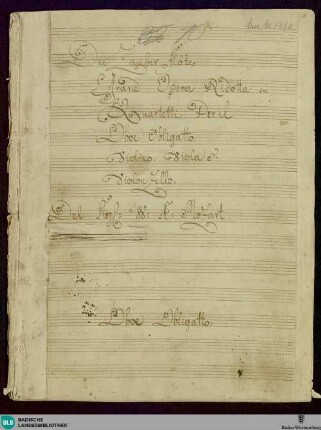 Die Zauber Flöte
Grande Opera Ridotta in
Quartetti Per il
Oboe Obligatto
Violino, Viola e
Violonzello.
Del Sigr: W: A: Mozart
Oboe Obligatto.
BLB
BADISCHE
LANDESBIBLIOTHEK
Baden-Württemberg